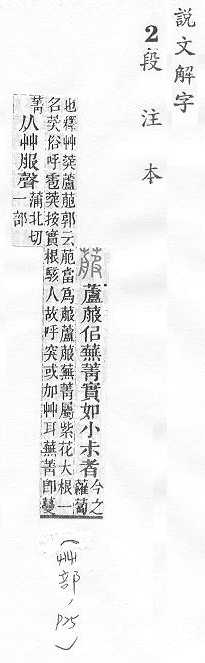 說文解字
2段注本
菔 蘆菔佀蕪菁實如小尗者今之
蘿蔔
也釋艸葖蘆萉郭云萉當爲菔蘆菔蕪菁屬紫花大根一
名葖俗呼雹葖按實根駭人故呼突或加艸耳蕪菁卽蔓
菁从艸服聲蒲北切
一部
(艸部, P25)